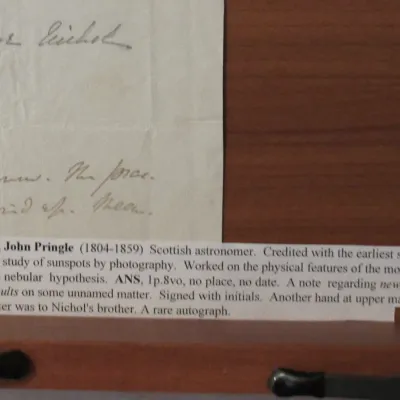 Nichol
The
John Pringle (1804-1859) Scottish astronomer. Credited with the earliest s
study of sunspots by photography. Worked on the physical features of the mo
nebular hypothesis. ANS, 1p.8vo, no place, no date. A note regarding new
ults on some unnamed matter. Signed with initials. Another hand at upper ma
er was to Nichol's brother. A rare autograph.